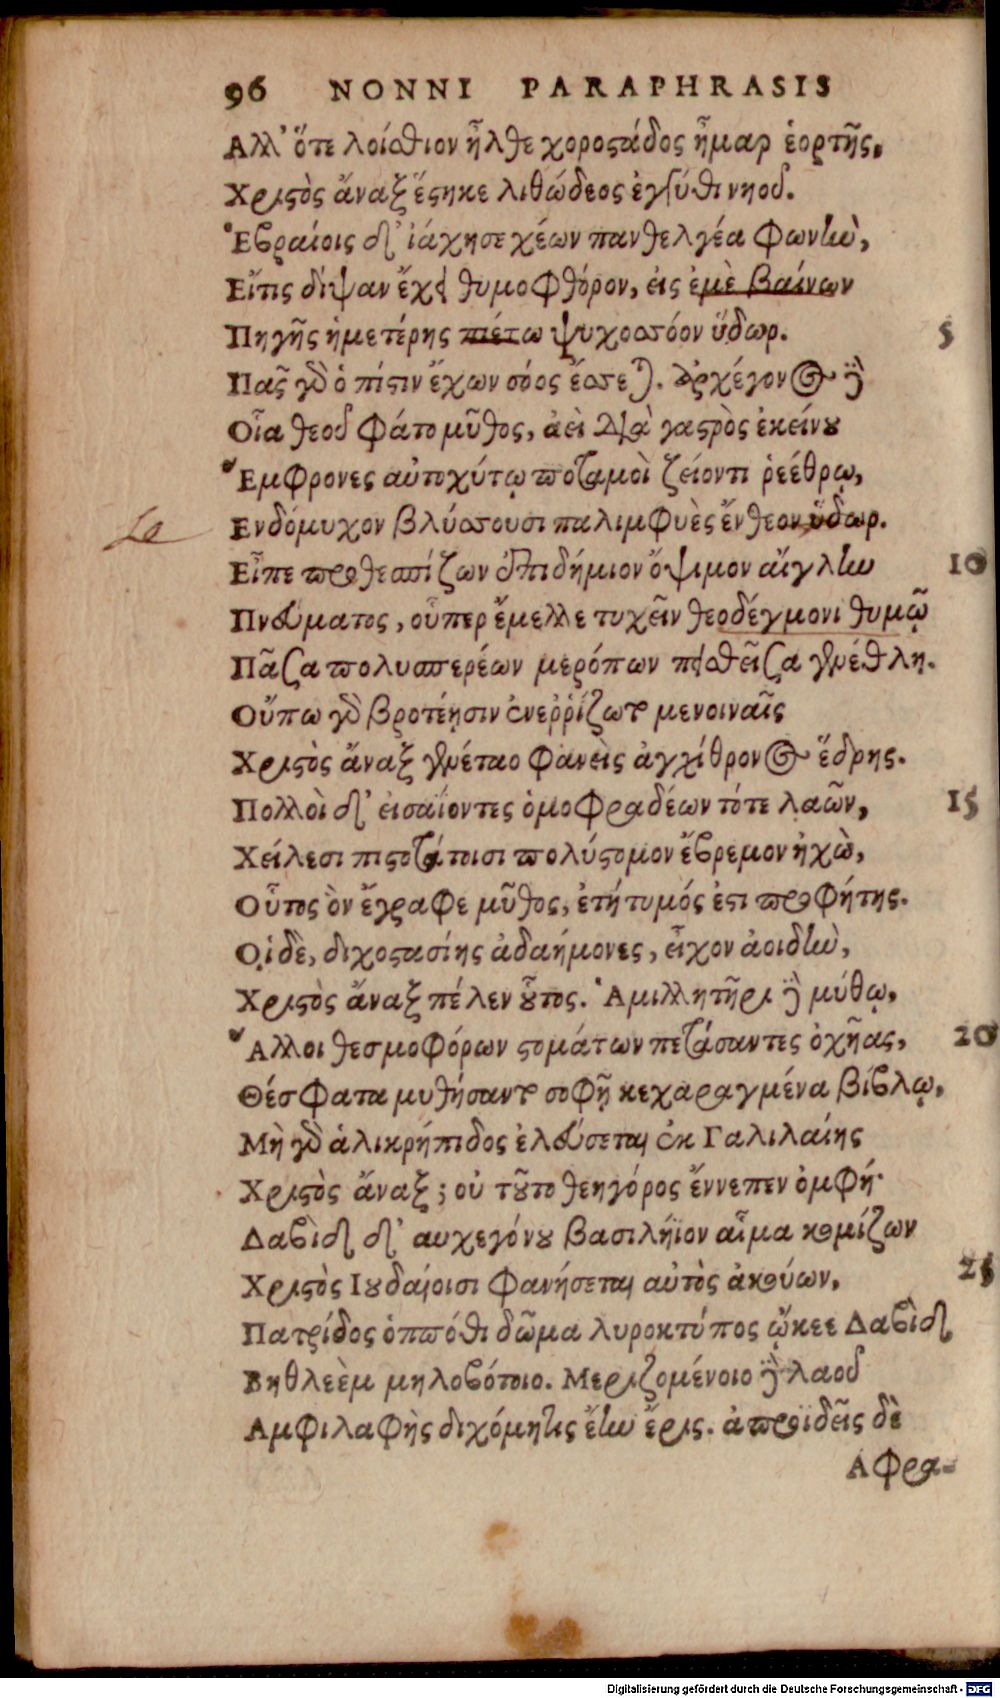 96 NONNI PARAPHRASIS
Αλλ' ὅτε λοίσθιον ἦλθε χοροστάδος ἦμαρ ἑορτῆς,
Χριστὸς ἄναξ ἕστηκε λιθώδεος ἐγγύθι νηοῦ.
Ἑβραίοις δ' ἰάχησε χέων πανθελγέα φωνὴν,
Εἴτις δίψαν ἔχει θυμοφθόρον, εἰς ἐμὲ βαίνων
Πηγῆς ἡμετέρης πιέτω ψυχοσσόον ὕδωρ. 5
Πᾶς γὰρ ὁ πίστιν ἔχων σόος ἔσσεται. ἀρχέγονος γὰρ
Οἷα θεοῦ φάτο μῦθος, ἀεὶ διὰ γαστρὸς ἐκείνου
Ἔμφρονες αὐτοχύτῳ ποταμοὶ ζείοντι ῥεέθρῳ,
Ενδόμυχον βλύσσουσι παλιμφυὲς ἔνθεον ὕδωρ.
Εἶπε προθεσπίζων ἐπιδήμιον ὄψιμον αἴγλην 10
Πνεύματος, οὗπερ ἔμελλε τυχεῖν θεοδέγμονι θυμῷ
Πᾶσα πολυσπερέων μερόπων πεισθεῖσα γενέθλη.
Οὔπω γὰρ βροτέῃσιν ἐνεῤῥίζωτο μενοιναῖς
Χριστὸς ἄναξ γενέταο φανεὶς ἀγχίθρονος ἕδρης.
Πολλοὶ δ' εἰσαΐοντες ὁμοφραδέων τότε λαῶν, 15
Χείλεσι πιστοτάτοισι πολύστομον ἔβρεμον ἠχὼ,
Οὗτος ὃν ἔγραφε μῦθος, ἐτήτυμός ἐστι προφήτης.
Οἱ δὲ, διχοστασίης ἀδαήμονες, εἶχον ἀοιδὴν,
Χριστὸς ἄναξ πέλεν οὗτος. Ἁμιλλητῆρι δὲ μύθῳ,
Ἄλλοι θεσμοφόρων στομάτων πετάσαντες ὀχῆας, 20
Θέσφατα μυθήσαντο σοφῇ κεχαραγμένα βίβλῳ,
Μὴ γὰρ ἁλικρήπιδος ἐλεύσεται ἐκ Γαλιλαίης
Χριστὸς ἄναξ; οὐ τοῦτο θεηγόρος ἔννεπεν ὀμφή·
Δαβὶδ δ' αυχεγόνου βασιλήϊον αἷμα κομίζων
Χριστὸς Ιουδαίοισι φανήσεται αὐτὸς ἀκούων, 25
Πατρίδος ὁππόθι δῶμα λυροκτύπος ᾤκεε Δαβὶδ
Βηθλεὲμ μηλοβότοιο. Μεριζομένοιο δὲ λαοῦ
Αμφιλαφὴς διχόμητις ἔην ἔρις. ἀπροϊδεῖς δὲ
Αφρα-
Digitalisierung gefördert durch die Deutsche Forschungsgemeinschaft - DFG